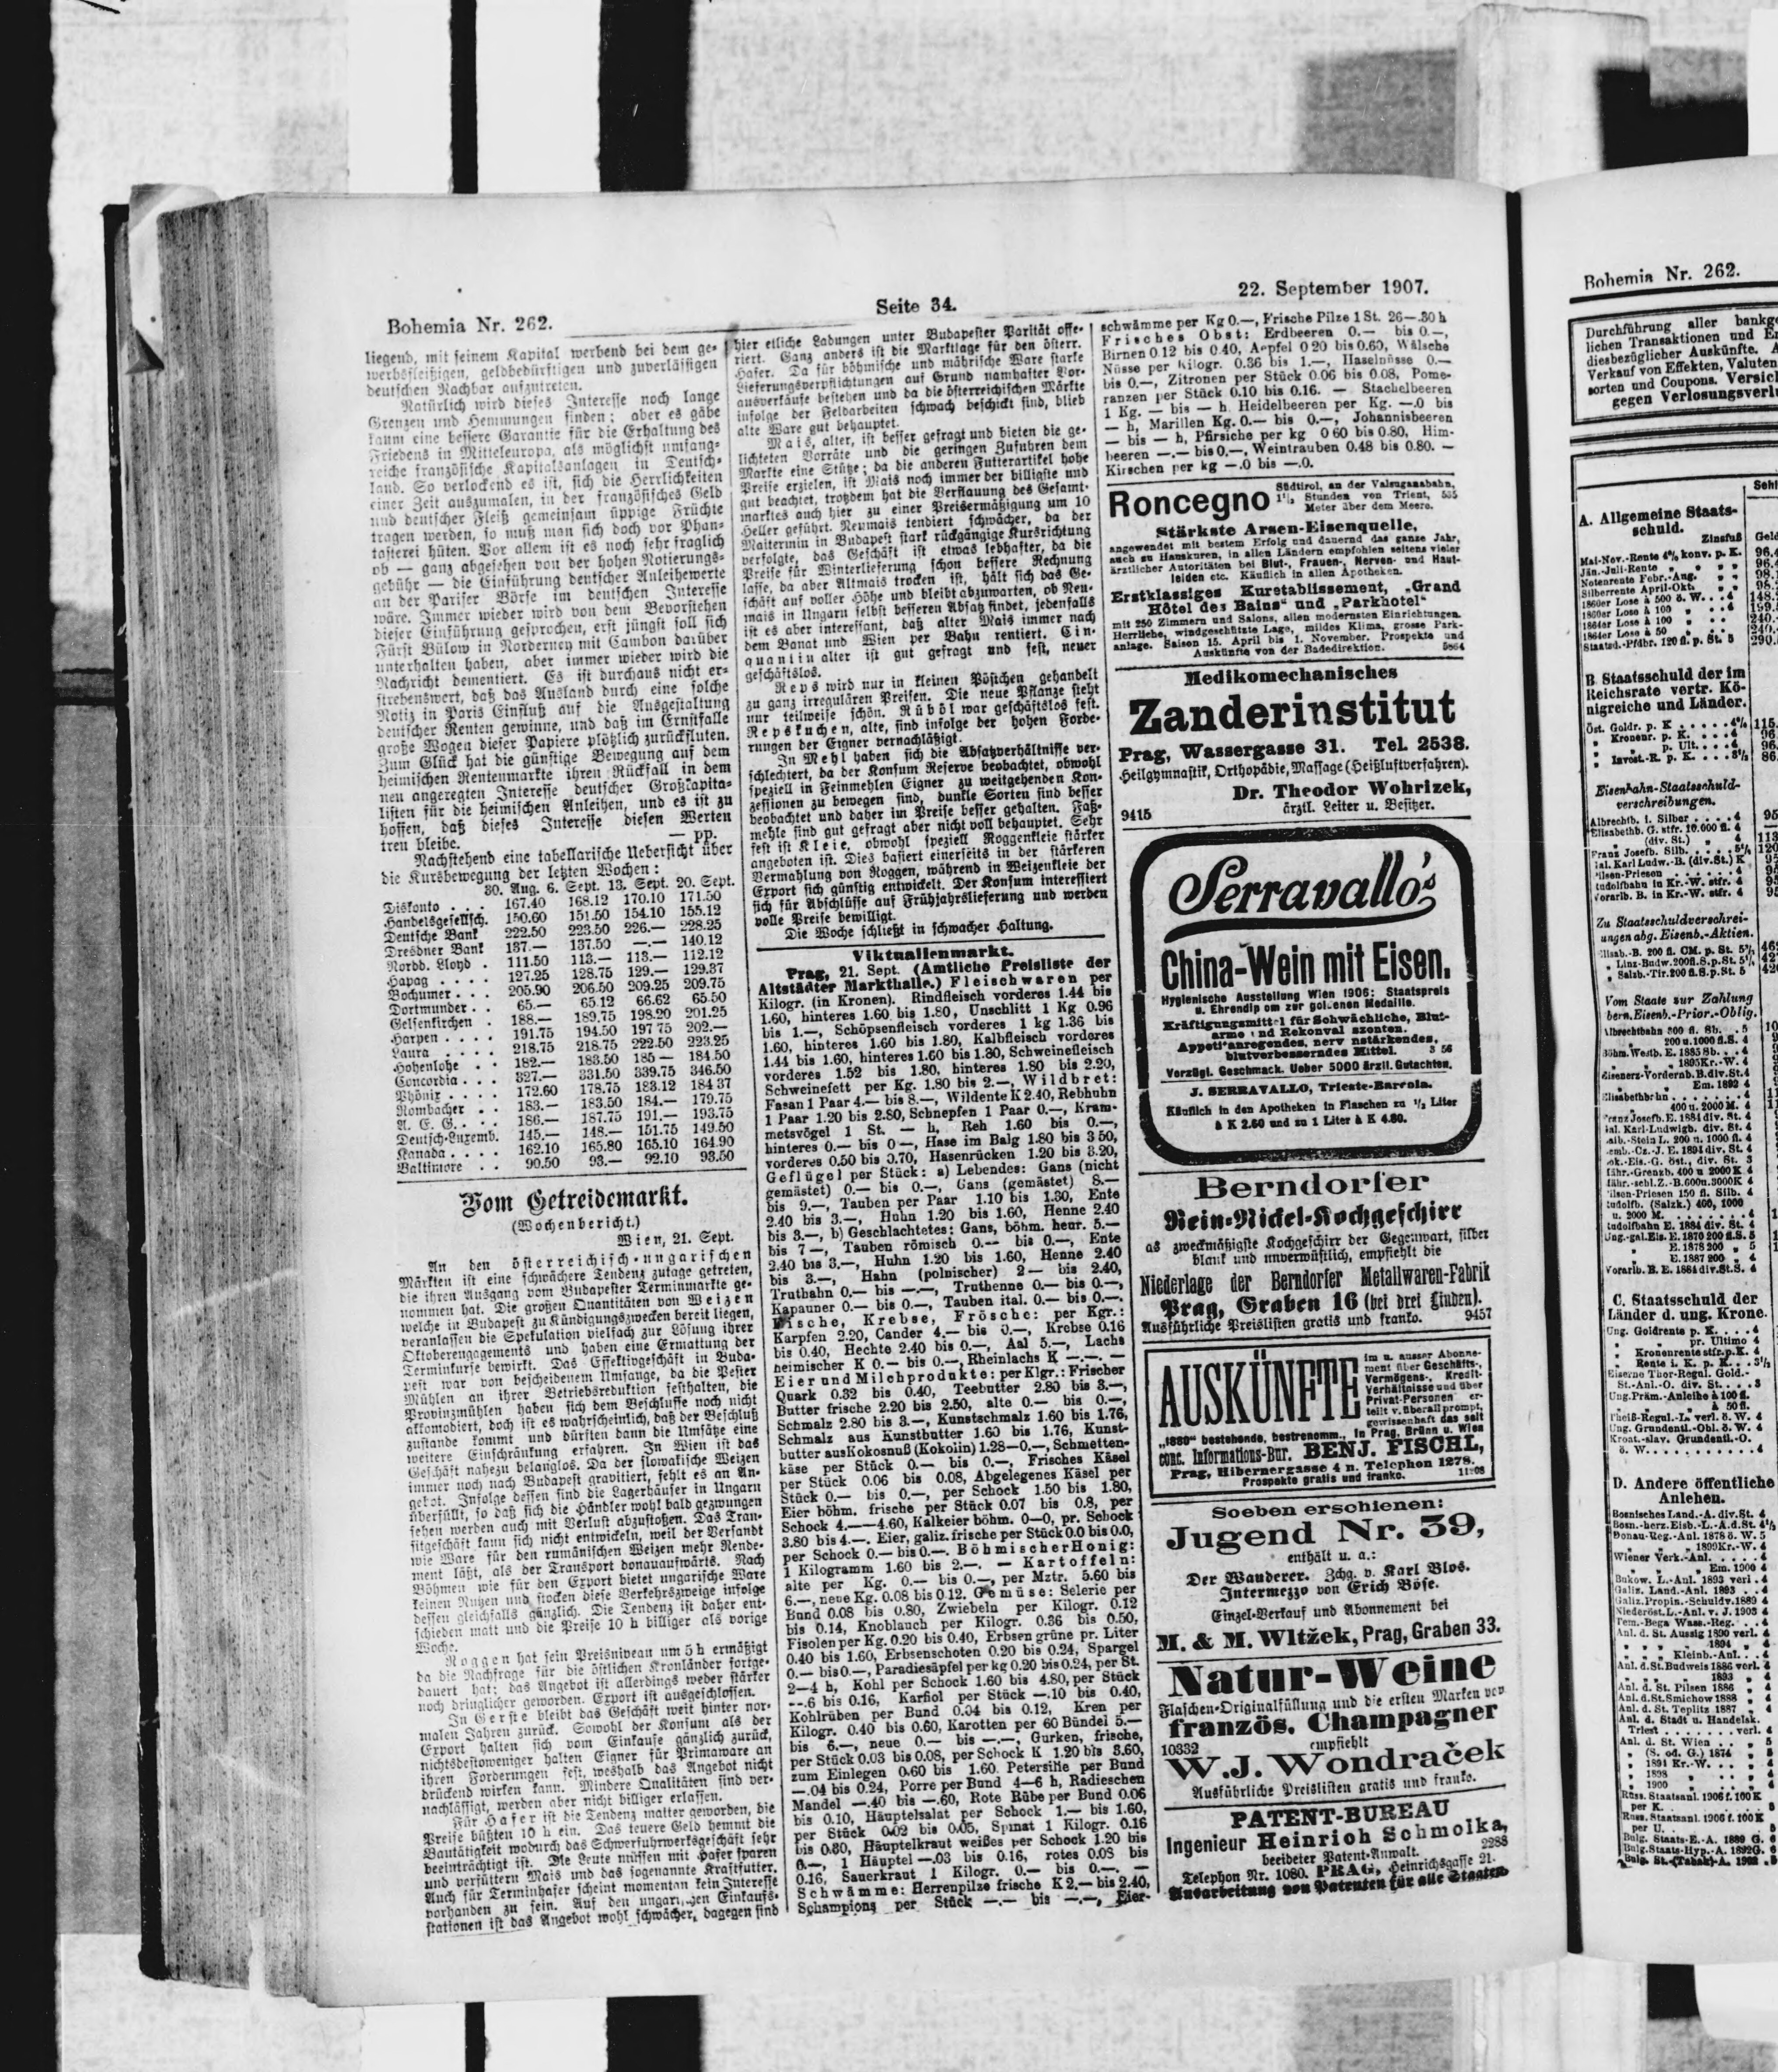 Bohemia Nr. 262.
Seite 34.
22. September 1907.
liegend, mit seinem Kapital werbend bei dem ge-
werbsfleißigen, geldbedürftigen und zuverlässigen
deutschen Nachbar aufzutreten.
Natürlich wird dieses Interesse noch lange
Grenzen und Hemmungen finden; aber es gäbe
kaum eine bessere Garantie für die Erhaltung des
Friedens in Mitteleuropa, als möglichst umfang-
reiche französische Kapitalsanlagen in Deutsch-
land. So verlockend es ist, sich die Herrlichkeiten
einer Zeit auszumalen, in der französisches Geld
und deutscher Fleiß gemeinsam üppige Früchte
tragen werden, so muß man sich doch vor Phan-
tasterei hüten. Vor allem ist es noch sehr fraglich
ob — ganz abgesehen von der hohen Notierungs-
gebühr — die Einführung deutscher Anleihewerte
an der Pariser Börse im deutschen Interesse
wäre. Immer wieder wird von dem Bevorstehen
dieser Einführung gesprochen, erst jüngst soll sich
Fürst Bülow in Norderney mit Cambon darüber
unterhalten haben, aber immer wieder wird die
Nachricht dementiert. Es ist durchaus nicht er-
strebenswert, daß das Ausland durch eine solche
Notiz in Paris Einfluß auf die Ausgestaltung
deutscher Renten gewinne, und daß im Ernstfalle
große Wogen dieser Papiere plötzlich zurückfluten.
Zum Glück hat die günstige Bewegung auf dem
heimischen Rentenmarkte ihren Rückfall in dem
neu angeregten Interesse deutscher Großkapita-
listen für die heimischen Anleihen, und es ist zu
hoffen, daß dieses Interesse diesen Werten
treu bleibe. — pp.
Nachstehend eine tabellarische Uebersicht über
die Kursbewegung der letzten Wochen:
30. Aug. 6. Sept. 13. Sept. 20. Sept.
Diskonto . . . 167.40 168.12 170.10 171.50
Handelsgesellsch. 150.60 151.50 154.10 155.12
Deutsche Bank 222.50 223.50 226.— 228.25
Dresdner Bank 137.— 137.50 —.— 140.12
Nordd. Lloyd . 111.50 113.— 113.— 112.12
Hapag . . . . 127.25 128.75 129.— 129.37
Bochumer . . . 205.90 206.50 209.25 209.75
Dortmunder . . 65.— 65.12 66.62 65.50
Gelsenkirchen . 188.— 189.75 198.20 201.25
Harpen . . . . 191.75 194.50 197 75 202.—
Laura . . . . 218.75 218.75 222.50 223.25
Hohenlohe . . 182.— 183.50 185 — 184.50
Concordia . . . 327.— 331.50 339.75 346.50
Phönix . . . . 172.60 178.75 183.12 184 37
Rombacher . . 183.— 183.50 184.— 179.75
A. E. G. . . . 186.— 187.75 191.— 193.75
Deutsch-Luxemb. 145.— 148.— 151.75 149.50
Kanada . . . . 162.10 165.80 165.10 164.90
Baltimore . . 90.50 93.— 92.10 93.50
Vom Getreidemarkt.
(Wochenbericht.)
Wien, 21. Sept.
An den österreichisch-ungarischen
Märkten ist eine schwächere Tendenz zutage getreten,
die ihren Ausgang vom Budapester Terminmarkte ge-
nommen hat. Die großen Quantitäten von Weizen
welche in Budapest zu Kündigungszwecken bereit liegen,
veranlassen die Spekulation vielfach zur Lösung ihrer
Oktoberengagements und haben eine Ermattung der
Terminkurse bewirkt. Das Effektivgeschäft in Buda-
pest war von bescheidenem Umfange, da die Pester
Mühlen an ihrer Betriebsreduktion festhalten, die
Provinzmühlen haben sich dem Beschlusse noch nicht
akkomodiert, doch ist es wahrscheinlich, daß der Beschluß
zustande kommt und dürften dann die Umsätze eine
weitere Einschränkung erfahren. In Wien ist das
Geschäft nahezu belanglos. Da der slowakische Weizen
immer noch nach Budapest gravitiert, fehlt es an An-
gebot. Infolge dessen sind die Lagerhäuser in Ungarn
überfüllt, so daß sich die Händler wohl bald gezwungen
sehen werden auch mit Verlust abzustoßen. Das Tran-
sitgeschäft kann sich nicht entwickeln, weil der Versandt
wie Ware für den rumänischen Weizen mehr Rende-
ment läßt, als der Transport donauaufwärts. Nach
Böhmen wie für den Export bietet ungarische Ware
keinen Nutzen und stocken diese Verkehrszweige infolge
dessen gleichfalls gänzlich. Die Tendenz ist daher ent-
schieden matt und die Preise 10 h billiger als vorige
Woche.
Roggen hat sein Preisniveau um 5 h ermäßigt
da die Nachfrage für die östlichen Kronländer fortge-
dauert hat; das Angebot ist allerdings weder stärker
noch dringlicher geworden. Export ist ausgeschlossen.
In Gerste bleibt das Geschäft weit hinter nor-
malen Jahren zurück. Sowohl der Konsum als der
Export halten sich vom Einkaufe gänzlich zurück,
nichtsdestoweniger halten Eigner für Primaware an
ihren Forderungen fest, weshalb das Angebot nicht
drückend wirken kann. Mindere Qualitäten sind ver-
nachlässigt, werden aber nicht billiger erlassen.
Für Hafer ist die Tendenz matter geworden, die
Preise büßten 10 h ein. Das teuere Geld hemmt die
Bautätigkeit wodurch das Schwerfuhrwerksgeschäft sehr
beeinträchtigt ist. Die Leute müssen mit Hafer sparen
und verfüttern Mais und das sogenannte Kraftfutter.
Auch für Terminhafer scheint momentan kein Interesse
vorhanden zu sein. Auf den ungarischen Einkaufs-
stationen ist das Angebot wohl schwächer, dagegen sind
hier etliche Ladungen unter Budapester Parität offe-
riert. Ganz anders ist die Marktlage für den österr.
Hafer. Da für böhmische und mährische Ware starke
Lieferungsverpflichtungen auf Grund namhafter Vor-
ausverkäufe bestehen und da die österreichischen Märkte
infolge der Feldarbeiten schwach beschickt sind, blieb
alte Ware gut behauptet.
Mais, alter, ist besser gefragt und bieten die ge-
lichteten Vorräte und die geringen Zufuhren dem
Markte eine Stütze; da die anderen Futterartikel hohe
Preise erzielen, ist Mais noch immer der billigste und
gut beachtet, trotzdem hat die Verflauung des Gesamt-
marktes auch hier zu einer Preisermäßigung um 10
Heller geführt. Neumais tendiert schwächer, da der
Maitermin in Budapest stark rückgängige Kursrichtung
verfolgte, das Geschäft ist etwas lebhafter, da die
Preise für Winterlieferung schon bessere Rechnung
lasse, da aber Altmais trocken ist, hält sich das Ge-
schäft auf voller Höhe und bleibt abzuwarten, ob Neu-
mais in Ungarn selbst besseren Absatz findet, jedenfalls
ist es aber interessant, daß alter Mais immer nach
dem Banat und Wien per Bahn rentiert. Cin-
quantin alter ist gut gefragt und fest, neuer
geschäftslos.
Reps wird nur in kleinen Pöstchen gehandelt
zu ganz irregulären Preisen. Die neue Pflanze steht
nur teilweise schön. Rüböl war geschäftslos fest.
Repskuchen, alte, sind infolge der hohen Forde-
rungen der Eigner vernachläßigt.
In Mehl haben sich die Absatzverhältnisse ver-
schlechtert, da der Konsum Reserve beobachtet, obwohl
speziell in Feinmehlen Eigner zu weitgehenden Kon-
zessionen zu bewegen sind, dunkle Sorten sind besser
beobachtet und daher im Preise besser gehalten. Faß-
mehle sind gut gefragt aber nicht voll behauptet. Sehr
fest ist Kleie, obwohl speziell Roggenkleie stärker
angeboten ist. Dies basiert einerseits in der stärkeren
Vermahlung von Roggen, während in Weizenkleie der
Export sich günstig entwickelt. Der Konsum interessiert
sich für Abschlüsse auf Frühjahrslieferung und werden
volle Preise bewilligt.
Die Woche schließt in schwacher Haltung.
Viktualienmarkt.
Prag, 21. Sept. (Amtliche Preisliste der
Altstädter Markthalle.) Fleischwaren per
Kilogr. (in Kronen). Rindfleisch vorderes 1.44 bis
1.60, hinteres 1.60 bis 1.80, Unschlitt 1 Kg 0.96
bis 1.—, Schöpsenfleisch vorderes 1 kg 1.36 bis
1.60, hinteres 1.60 bis 1.80, Kalbfleisch vorderes
1.44 bis 1.60, hinteres 1.60 bis 1.80, Schweinefleisch
vorderes 1.52 bis 1.80, hinteres 1.80 bis 2.20,
Schweinefett per Kg. 1.80 bis 2.—, Wildbret:
Fasan 1 Paar 4.— bis 8.—, Wildente K 2.40, Rebhuhn
1 Paar 1.20 bis 2.80, Schnepfen 1 Paar 0.—, Kram-
metsvögel 1 St. — h, Reh 1.60 bis 0.—,
hinteres 0.— bis 0—, Hase im Balg 1.80 bis 3 50,
vorderes 0.50 bis 0.70, Hasenrücken 1.20 bis 3.20,
Geflügel per Stück: a) Lebendes: Gans (nicht
gemästet) 0.— bis 0.—, Gans (gemästet) 8.—
bis 9.—, Tauben per Paar 1.10 bis 1.30, Ente
2.40 bis 3.—, Huhn 1.20 bis 1.60, Henne 2.40
bis 3.—, b) Geschlachtetes: Gans, böhm. heur. 5.—
bis 7—, Tauben römisch 0.— bis 0.—, Ente
2.40 bis 3.—, Huhn 1.20 bis 1.60, Henne 2.40
bis 3.—, Hahn (polnischer) 2— bis 2.40,
Truthahn 0.— bis —.—, Truthenne 0.— bis 0.—,
Kapauner 0.— bis 0.—, Tauben ital. 0.— bis 0.—.
Fische, Krebse, Frösche: per Kgr.:
Karpfen 2.20, Cander 4.— bis 0.—, Krebse 0.16
bis 0.40, Hechte 2.40 bis 0.—, Aal 5.—, Lachs
heimischer K 0.— bis 0.—, Rheinlachs K —.—. —
Eier und Milchprodukte: per Klgr.: Frischer
Quark 0.32 bis 0.40, Teebutter 2.80 bis 3.—,
Butter frische 2.20 bis 2.50, alte 0.— bis 0.—,
Schmalz 2.80 bis 3.—, Kunstschmalz 1.60 bis 1.76,
Schmalz aus Kunstbutter 1.60 bis 1.76, Kunst-
butter aus Kokosnuß (Kokolin) 1.28—0.—, Schmetten-
käse per Stück 0.— bis 0.—, Frisches Käsel
per Stück 0.06 bis 0.08, Abgelegenes Käsel per
Stück 0.— bis 0.—, per Schock 1.50 bis 1.80,
Eier böhm. frische per Stück 0.07 bis 0.8, per
Schock 4.——4.60, Kalkeier böhm. 0—0, pr. Schock
3.80 bis 4.—. Eier, galiz. frische per Stück 0.0 bis 0.0,
per Schock 0.— bis 0.—. Böhmischer Honig:
1 Kilogramm 1.60 bis 2.—. — Kartoffeln:
alte per Kg. 0.— bis 0.—, per Mztr. 5.60 bis
6.—, neue Kg. 0.08 bis 0.12. Gemüse: Selerie per
Bund 0.08 bis 0.80, Zwiebeln per Kilogr. 0.12
bis 0.14, Knoblauch per Kilogr. 0.36 bis 0.50,
Fisolen per Kg. 0.20 bis 0.40, Erbsen grüne pr. Liter
0.40 bis 1.60, Erbsenschoten 0.20 bis 0.24, Spargel
0.— bis 0.—, Paradiesäpfel per kg 0.20 bis 0.24, per St.
2—4 h, Kohl per Schock 1.60 bis 4.80, per Stück
—.6 bis 0.16, Karfiol per Stück —.10 bis 0.40,
Kohlrüben per Bund 0.04 bis 0.12, Kren per
Kilogr. 0.40 bis 0.60, Karotten per 60 Bündel 5.—
bis 6.—, neue 0.— bis —.—, Gurken, frische,
per Stück 0.03 bis 0.08, per Schock K 1.20 bis 3.60,
zum Einlegen 0.60 bis 1.60. Petersilie per Bund
—.04 bis 0.24, Porre per Bund 4—6 h, Radieschen
Mandel —.40 bis —.60, Rote Rübe per Bund 0.06
bis 0.10, Häuptelsalat per Schock 1.— bis 1.60,
per Stück 0.02 bis 0.05, Spinat 1 Kilogr. 0.16
bis 0.30, Häuptelkraut weißes per Schock 1.20 bis
6.—, 1 Häuptel —.03 bis 0.16, rotes 0.08 bis
0.16, Sauerkraut 1 Kilogr. 0.— bis 0.—. —
Schwämme: Herrenpilze frische K 2.— bis 2.40,
Schampions per Stück —.— bis —.—, Eier-
schwämme per Kg 0.—, Frische Pilze 1 St. 26—.30 h
Frisches Obst: Erdbeeren 0.— bis 0.—,
Birnen 0.12 bis 0.40, Aepfel 0 20 bis 0.60, Wälsche
Nüsse per Kilogr. 0.36 bis 1.—, Haselnüsse 0.—
bis 0.—, Zitronen per Stück 0.06 bis 0.08, Pome-
ranzen per Stück 0.10 bis 0.16. — Stachelbeeren
1 Kg. — bis — h. Heidelbeeren per Kg. —.0 bis
— h, Marillen Kg. 0.— bis 0.—, Johannisbeeren
— bis — h, Pfirsiche per kg 0 60 bis 0.80, Him-
beeren —.— bis 0.—, Weintrauben 0.48 bis 0.80. —
Kirschen per kg —.0 bis —.0.
Roncegno
Südtirol, an der Valsuganabahn,
1½ Stunden von Trient, 535
Meter über dem Meere.
Stärkste Arsen-Eisenquelle,
angewendet mit bestem Erfolg und dauernd das ganze Jahr,
auch zu Hauskuren, in allen Ländern empfohlen seitens vieler
ärztlicher Autoritäten bei Blut-, Frauen-, Nerven- und Haut-
leiden etc. Käuflich in allen Apotheken.
Erstklassiges Kuretablissement, „Grand
Hôtel des Bains“ und „Parkhotel“
mit 250 Zimmern und Salons, allen modernsten Einrichtungen.
Herrliche, windgeschützte Lage, mildes Klima, grosse Park-
anlage. Saison 15. April bis 1. November. Prospekte und
Auskünfte von der Badedirektion.
Medikomechanisches
Zanderinstitut
Prag, Wassergasse 31. Tel. 2538.
Heilgymnastik, Orthopädie, Massage (Heißluftverfahren).
Dr. Theodor Wohrizek,
9415 ärztl. Leiter u. Besitzer.
Serravallo's
China-Wein mit Eisen.
Hygienische Ausstellung Wien 1906: Staatspreis
u. Ehrendiplom zur goldenen Medaille.
Kräftigungsmittel für Schwächliche, Blut-
arme und Rekonvaleszenten.
Appetitanregendes, nervenstärkendes,
blutverbesserndes Mittel.
Vorzügl. Geschmack. Ueber 5000 ärztl. Gutachten.
J. SERRAVALLO, Trieste-Barcola.
Käuflich in den Apotheken in Flaschen zu ½ Liter
à K 2.60 und zu 1 Liter à K 4.80.
Berndorfer
Rein-Nickel-Kochgeschirr
als zweckmäßigste Kochgeschirr der Gegenwart, silber
blank und unverwüstlich, empfiehlt die
Niederlage der Berndorfer Metallwaren-Fabrik
Prag, Graben 16 (bei drei Linden).
Ausführliche Preislisten gratis und franko. 9457
AUSKÜNFTE
im u. ausser Abonne-
ment über Geschäfts-,
Vermögens-, Kredit-
Verhältnisse und über
Privat-Personen er-
teilt v. überall prompt,
gewissenhaft das seit
„1889“ bestehende, bestrenomm., in Prag, Brünn u. Wien
conc. Informations-Bur. BENJ. FISCHL,
Prag, Hibernergasse 4 n. Telephon 1278.
Prospekte gratis und franko.
Soeben erschienen:
Jugend Nr. 39,
enthält u. a.:
Der Wanderer. Zchg. v. Karl Blos.
Intermezzo von Erich Böse.
Einzel-Verkauf und Abonnement bei
M. & M. Wltžek, Prag, Graben 33.
Natur-Weine
Flaschen-Originalfüllung und die ersten Marken von
französ. Champagner
10332 empfiehlt
W. J. Wondraček
Ausführliche Preislisten gratis und franko.
PATENT-BUREAU
Ingenieur Heinrich Schmolka,
beeideter Patent-Anwalt. 2288
Telephon Nr. 1080. PRAG, Heinrichsgasse 21.
Ausarbeitung von Patenten für alle Staaten
Bohemia Nr. 262.
Durchführung aller bankge
lichen Transaktionen und
diesbezüglicher Auskünfte.
Verkauf von Effekten, Valuten
sorten und Coupons.
gegen
A. Allgemeine Staats-
schuld.
Zinsfuß
Mai-Nov.-Rente 4% konv. p. K.
Jän.-Juli-Rente
Notenrente Febr.-Aug.
Silberrente April-Okt.
1860er Lose à 500 ö. W. . . 4
1860er Lose à 100 „ . . 4
1864er Lose à 100
1864er Lose à 50
Staatsd.-Pfdbr. 120 fl. p. St. 5
B Staatsschuld der im
Reichsrate vertr. Kö-
nigreiche und Länder.
Öst. Goldr. p. K . . . . . 4%
„ Kronenr. p. K. . . . 4
„ „ p. Ult. . . . 4
„ Invest.-R. p. K. . . . 3½
Eisenbahn-Staatsschuld-
verschreibungen.
Albrechtb. i. Silber . . . . 4
Elisabethb. G. stfr. 10.000 fl. 4
(div. St.)
Franz Josefb. Silb. . . . 5¼
Gal. Karl Ludw.-B. (div.St.) K
Zu Staatsschuldverschrei-
ungen abg. Eisenb.-Aktien.
Vom Staate zur Zahlung
bern. Eisenb.-Prior.-Oblig.
Albrechtbahn 300 fl. Sb. . 5
Böhm. Westb. E. 1885 Sb. . . 4
„ „ 1895 Kr.-W. 4
Eisenerz-Vordernb. B. div. St. 4
Em. 1893 4
400 u. 2000 M. 4
Franz Josefb. E. 1884 div. St. 4
C. Staatsschuld der
Länder d. ung. Krone.
Ung. Goldrente p. K. . . . 4
„ „ pr. Ultimo 4
„ Kronenrente stfr. p. K. 4
„ Rente i. K. p. K. . . 3½
Eiserne Thor-Regul. Gold.-
St.-Anl.-O. div. St. . . . 3
Ung. Präm.-Anleihe à 100 fl.
„ „ à 50 fl.
Theiß-Regul.-L. verl. ö. W. 4
Ung. Grundentl.-Obl. ö. W. 4
Kroat.-slav. Grundentl.-O.
ö. W. . . . . . . . . . 4
D. Andere öffentliche
Anlehen.
Bosnisches Land.-A. div. St. 4
Bosn.-herz. Eisb.-L.-A. d. St. 4½
Donau-Reg.-Anl. 1878 ö. W. 5
„ „ 1899 Kr.-W. 4
Wiener Verk.-Anl. . . . . 4
„ „ Em. 1900 4
Bukow. L.-Anl. 1893 verl. 4
Galiz. Land.-Anl. 1893 . . 4
Galiz. Propin.-Schuldv. 1889 4
Niederöst. L.-Anl. v. J. 1903 4
Tem.-Bega Wass.-Reg. . . 4
Anl. d. St. Aussig 1890 verl. 4
„ „ „ 1894 „ 4
„ „ „ Kleinb.-Anl. . . 4
Anl. d. St. Budweis 1886 verl. 4
1893 „ 4
Anl. d. St. Pilsen 1886 „ 4
Anl. d. St. Smichow 1888 „ 4
Anl. d. St. Teplitz 1887 „ 4
Anl. d. Stadt u. Handelsk.
Triest . . . . . . . verl. 4
Anl. d. St. Wien . . . . 5
„ (S. od. G.) 1874 „ 5
„ 1894 Kr.-W. . . . 4
„ 1898 „ 4
„ 1900 „ 4
Russ. Staatsanl. 1906 f. 100 K
per K. . . . . . . . . 5
Russ. Staatsanl. 1906 f. 100 K
per U. . . . . . . . . 5
Bulg. Staats-E.-A. 1889 G. 6
Bulg. Staats-Hyp.-A. 1892 G. 6
Bulg. St.-(Tabak)-A. 1902 . 5